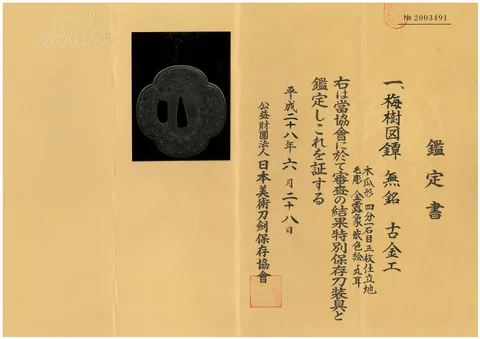 № 2003491
鑑定書
一、梅樹図鐔 無銘 古金工
木瓜形 四分一石目三枚仕立地
毛彫 金露象嵌色絵 丸耳
右は當協會に於て審査の結果特別保存刀装具と
鑑定しこれを証する
平成二十八年六月二十八日
公益財團法人 日本美術刀劍保存協會